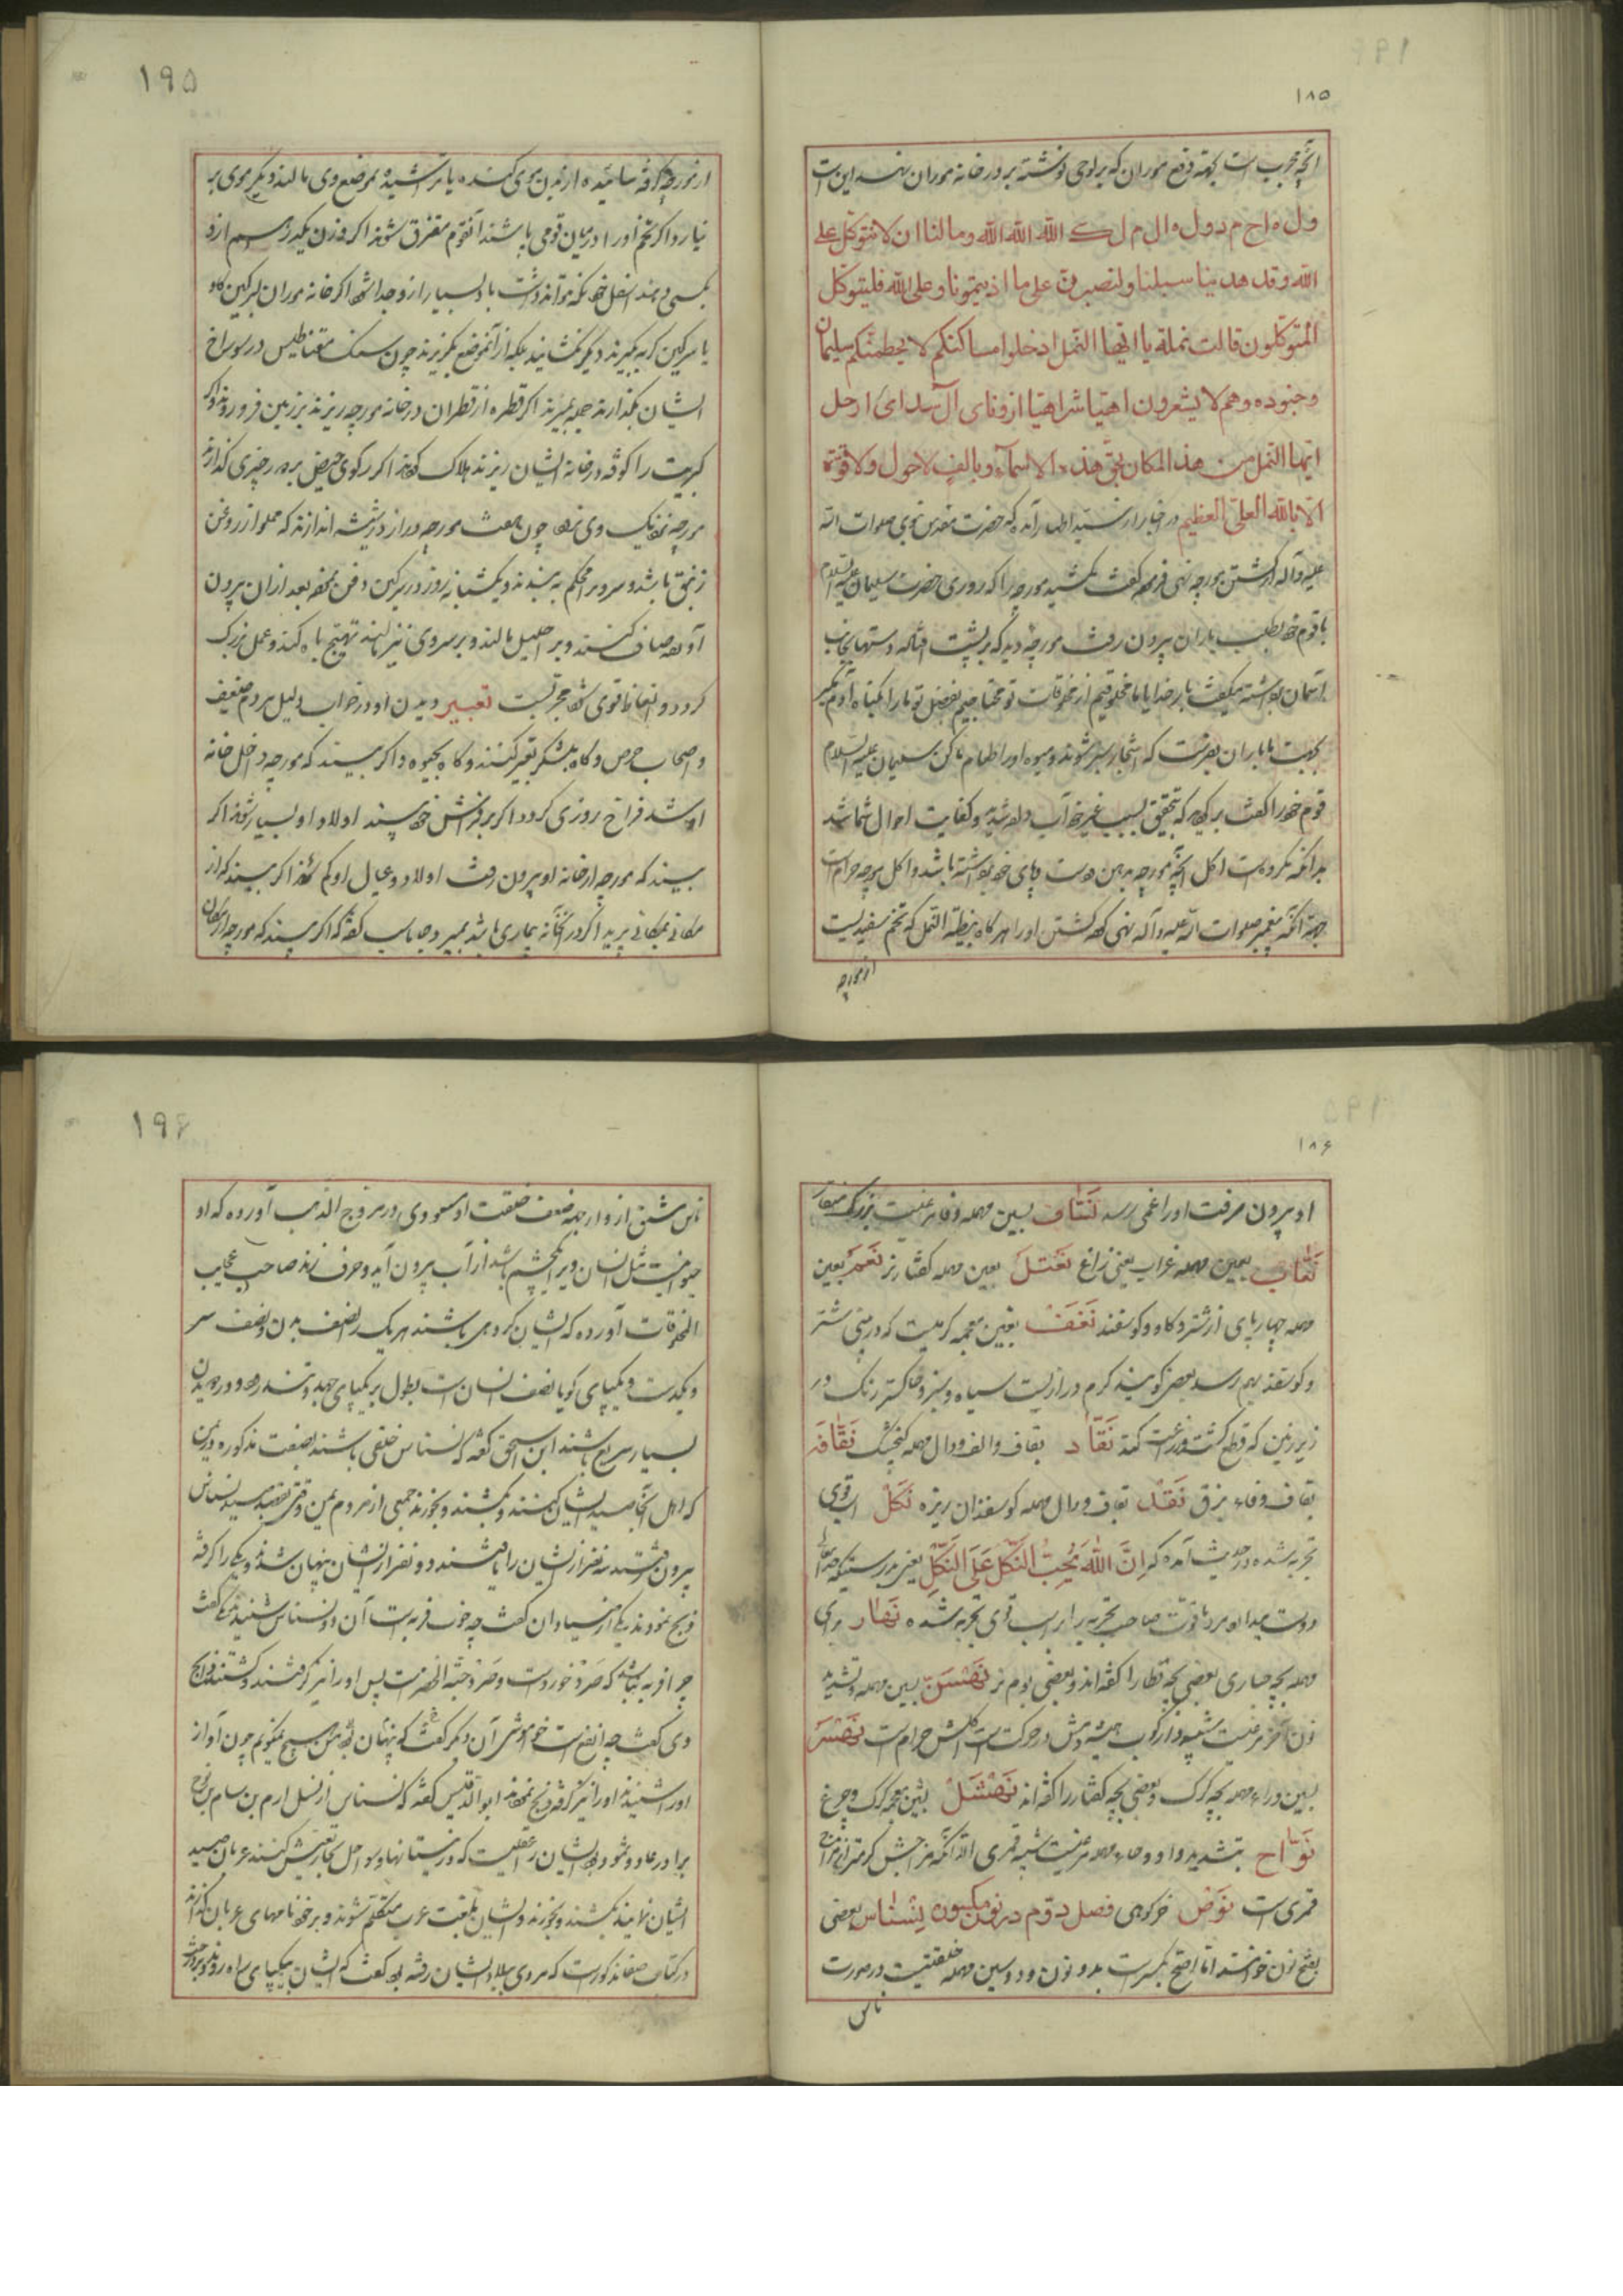 ۱۸۵
آنچه مجرب است بجهة دفع موران که بر لوحی نوشته بر در خانه موران نهند این است
ول ه اح م د ول ه ال م ل ک الله الله الله وما لنا ان لا نتوکل علی
الله وقد هدینا سبلنا ولنصبرن علی ما اذیتمونا وعلی الله فلیتوکل
المتوکلون قالت نملة یا ایها النمل ادخلوا مساکنکم لا یحطمنکم سلیمان
وجنوده وهم لا یشعرون اهیا شراهیا ازونای آل شدای ارحل
ایها النمل من هذا المکان بحق هذه الاسماء وبالف لا حول ولا قوة
الا بالله العلی العظیم در اخبار آمده که حضرت نبوی صلوات الله
علیه وآله از کشتن مورچه نهی فرموده گفت مکشید مورچه را که روزی حضرت سلیمان علیه السلام
با قوم خود بطلب باران بیرون رفت مورچه دید که بر پشت افتاده دستها بجانب
آسمان برداشته میگفت بار خدایا ما مخلوقیم از مخلوقات تو محتاجیم بفضل تو ما را بگناه آدم مگیر
باران بفرست که اشجار سبز شوند ومیوه اورا طعام ما کن سلیمان علیه السلام
قوم خود را گفت برگردید که بتحقیق بسبب غیر خود آب داده شدید وکفایت احوال شما شد
بدانکه مکروه است اکل آنچه مورچه بدهن ودست وپای خود برداشته باشد واکل مورچه حرام است
جهة آنکه پیغمبر صلوات الله علیه وآله نهی کرده کشتن اورا هر گاه بیضة النمل که تخم سفیدیست
از مورچه
۱۹۵
از مورچه گرفته سائیده از بدن موی کنده یا تراشیده بموضع وی مالند دیگر موی بر
نیارد واگر تخم اورا در میان قومی پاشند آن قوم متفرق شوند اگر وزن یکدرهم ازو
بکسی دهند اسفل خود نگه نتواند داشت باد بسیار ازو جدا شود اگر خانه موران بسرگین گاو
یا سرگین گربه بگیرند دیگر نگشایند بلکه از آن موضع بگریزند چون سنگ مقناطیس در سوراخ
ایشان بگذارند همه بمیرند اگر قطره از قطران در خانه مورچه ریزند بزمین فرو روند واگر
کبریت را کوفته در خانه ایشان ریزند هلاک شوند اگر رگوی حیض بر در چیزی گذارند
مورچه نزدیک وی نرود چون هفت مورچه دراز در شیشه اندازند که مملو از روغن
زنبق باشد وسر ویرا محکم به بندند ویکشبانه روز در سرگین دفن نموده بعد از آن بیرون
آورده صاف کنند وبر احلیل مالند وبر سر وی نیز مالند تهییج باه کند وعمل بزرگ
گردد وانعاظ قوی شود مجرّبست تعبیر دیدن او در خواب دلیل مردم ضعیف
واصحاب حرص وگاه بلشکر تعبیر کنند وگاه بحیوة واگر بیند که مورچه داخل خانه
او شد فراخ روزی گردد اگر بر فراش خود بیند اولاد او بسیار شوند اگر
بیند که مورچه از خانه او بیرون رفت اولاد وعیال او کم شوند اگر بیند که از
مکانی بمکانی پرید اگر در آن خانه بیماری باشد بمیرد وجاماسب گفته که اگر بیند که مورچه از مکان
۱۸۶
او بیرون میرفت اورا غمی رسد نسّاف بسین مهمله وفا مرغیست بزرگ منقار
نعّاب بعین مهمله غراب یعنی زاغ نعثل بعین مهمله کفتار نر نَعَم بعین
مهمله چهارپای از شتر وگاو وگوسفند نَغَف بغین معجمه کرمیست که در بینی شتر
وگوسفند بهم رسد بعضی گویند کرم درازیست سیاه وسبز وخاکستر رنگ در
زیر زمین که قطع کشت وزراعت کند نَقّاد بقاف والف ودال مهمله گنجشک نَقّافه
بقاف وفاء بزق نَقَد بقاف ودال مهمله گوسفندان ریزه نَکَل اسب قوی
تجربه شده ودر حدیث آمده که اِنَّ اللّهَ یُحِبُّ النَّکَلَ عَلَی النَّکَلِ یعنی بدرستیکه خدای تعالی
دوست میدارد مرد با قوّت صاحب تجربه را بر اسب قوی تجربه شده نَهار برای
مهمله بچه حباری بعضی بچه قطا را گفته اند وبعضی بوم نر نَهْسَن بسین مهمله وتشدید
نون آخر مرغیست شبیه بدارکوب همیشه دمش در حرکت است اکلش حرام است نَهْسَر
بسین وراء مهمله بچه گرگ وبعضی بچه کفتار را گفته اند نَهْشَل بشین معجمه گرگ وچرغ
نَوّاح بتشدید واو وحاء مهمله مرغیست شبیه قمری الا آنکه مزاجش گرمتر از مزاج
قمری است نَوَص خر کوهی فصل دوّم در نون مکسوره نِسْناس بعضی
بفتح نون خوانده اند اما اصح بکسر است بدو نون ودو سین مهمله خلقتیست در صورت
ناس
۱۹۶
ناس مشتق ازو از جهة ضعف خلقت او مسعودی در مروج الذهب آورده که او
حیوانیست مثل انسان ویرا یکچشم باشد از آب بیرون آید وحرف زند صاحب عجایب
المخلوقات آورده که ایشان گروهی باشند هر یک را نصف بدن ونصف سر
ویکدست ویکپای گویا نصف انسان است بطول بر یکپای جهد وتند رود ودر دویدن
بسیار سریع باشند ابن اسحق گفته که نسناس خلقی باشند بصفت مذکوره در یمن
که اهل آنجا صید ایشان کنند وبکشند وبخورند جمعی از مردم یمن وقتی بقصد صید نسناس
بیرون رفتند سه نفر از ایشان را یافتند دو نفر از ایشان پنهان شدند ویکی را گرفته
ذبح نمودند یکی از صیادان گفت چه خوب فربه است آن دو نسناس شنیدند یکی گفت
چرا فربه نباشد که ضرو خورده است وضرو حبة الخضر است پس اورا نیز گرفتند وکشتند ذابح
وی گفت چه نافع است خاموشی آن دیگر گفت که پنهان بود من هیچ نمیگویم چون آواز
اورا شنیدند اورا نیز گرفته ذبح نمودند ابو الدقیس گفته که نسناس از نسل ارم بن سام بن نوح
برادر عاد وثمود وایشان را عقل نیست که در نیستانها وسواحل بحار تعیش کنند عربان صید
ایشان نمایند بکشند وبخورند وایشان بلغت عرب متکلم شوند وبر خود نامهای عربان گذارند
در کتاب صفا مذکور است که مردی ببلاد ایشان رفته بود گفت که ایشان بیکپای راه روند وبر درخت